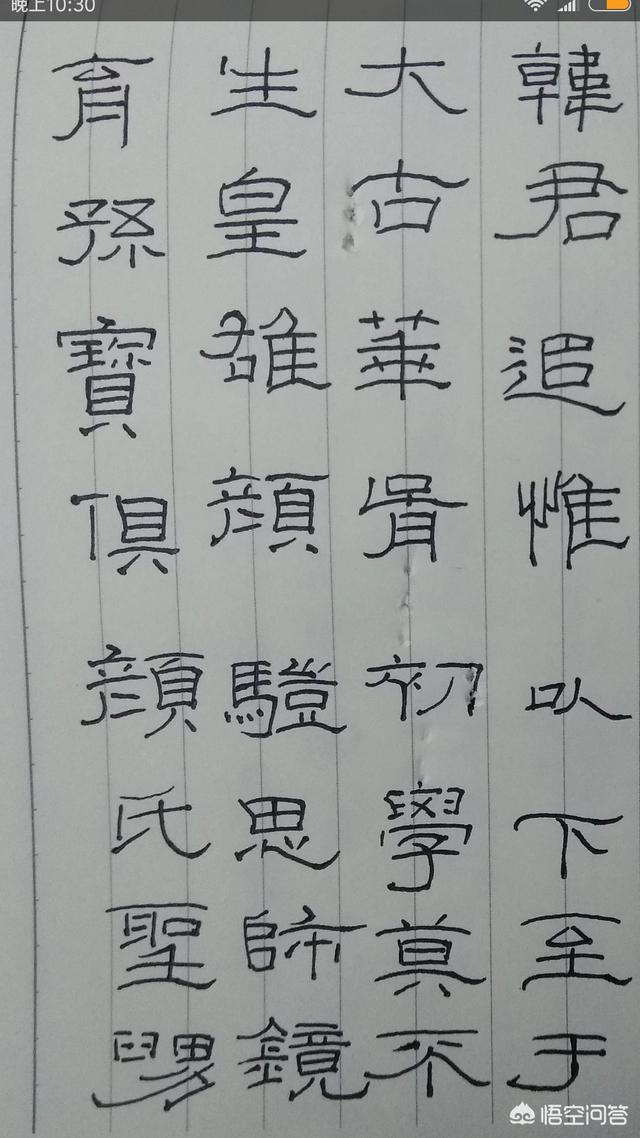 晚上10:30
韓君追惟㕥下至于
大古華胥初學莫不
生皇雄顏驥思師鏡
育孫寶俱顏氏聖舅
悟空问答